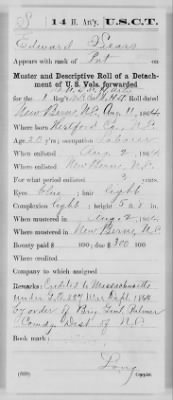 S | 14 H. Art'y. | U.S.C.T.
Edward
Appears with rank of Pvt
Muster and Descriptive Roll of a Detach-
ment of U. S. Vols. forwarded
for the 1 Reg't Roll dated
New Berne N.C. Aug 11, 1864
Where born Hertford Co., N.C.
Age 20 y'rs; occupation Laborer
When enlisted Aug 2, 1864
Where enlisted New Berne, N.C.
For what period enlisted 3 years.
Eyes blue; hair light
Complexion light; 5 ft. 8 in.
When mustered in Aug 2, 1864
Where mustered in New Berne, N.C.
Bounty paid $ 100; due $ 300 100
Where credited
Company to which assigned
Remarks: Credited to Massachusetts
under G.O. 227 War Dept. 1864
by order of Brig Genl Palmer
Comdg Dist of N.C.
Book mark:
Long
Copyist.